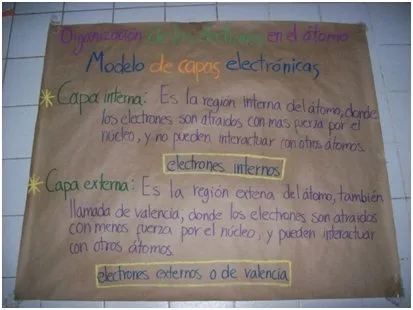 Organización de los electrones en el átomo
Modelo de capas electrónicas
Capa interna: Es la región interna del átomo, donde
los electrones son atraidos con mas fuerza por el
núcleo, y no pueden interactuar con otros átomos.
electrones internos
Capa externa: Es la región externa del átomo, también
llamada de valencia, donde los electrones son atraidos
con menos fuerza por el núcleo, y pueden interactuar
con otros átomos.
electrones externos o de valencia